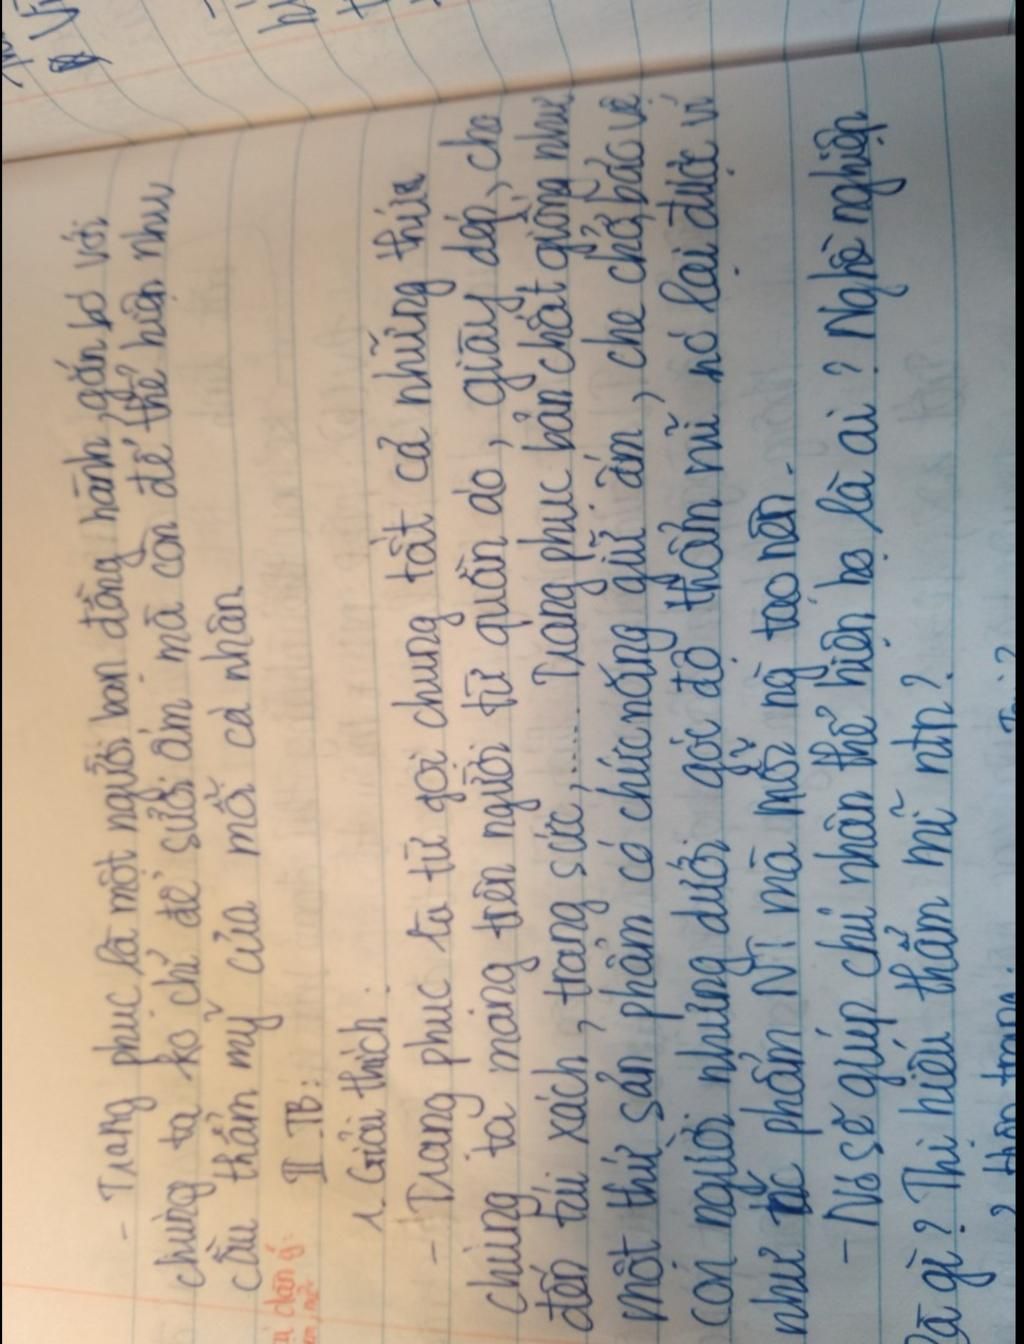 - Trang phục là một người bạn đồng hành, gắn bó với
chúng ta ko chỉ để sưởi ấm mà còn để thể hiện nhu
cầu thẩm mỹ của mỗi cá nhân.
II TB:
1. Giải thích:
- Trang phục là từ gọi chung tất cả những thứ
chúng ta mang trên người từ quần áo, giày dép, cho
đến túi xách, trang sức,..... Trang phục bản chất giống như
một thứ sản phẩm có chức năng giữ ấm, che chở, bảo vệ
con người nhưng dưới góc độ thẩm mĩ nó lại được ví
như tác phẩm NT mà mỗi ng tạo nên.
- Nó sẽ giúp chủ nhân thể hiện họ là ai? Nghề nghiệp
là gì? Thị hiếu thẩm mĩ ntn?